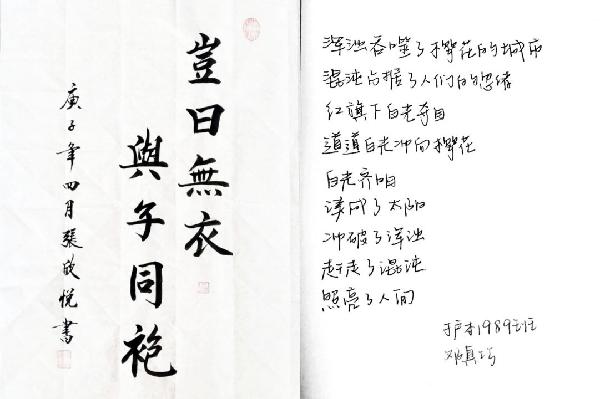 豈曰無衣
與子同袍
庚子年四月張欣悅書
浑浊吞噬了樱花的城市
混沌占据了人们的思绪
红旗下白光夺目
道道白光冲向樱花
白光齐
了太阳
冲破了浑浊
赶走了混沌
照亮了人间
护本1989
邓真巧